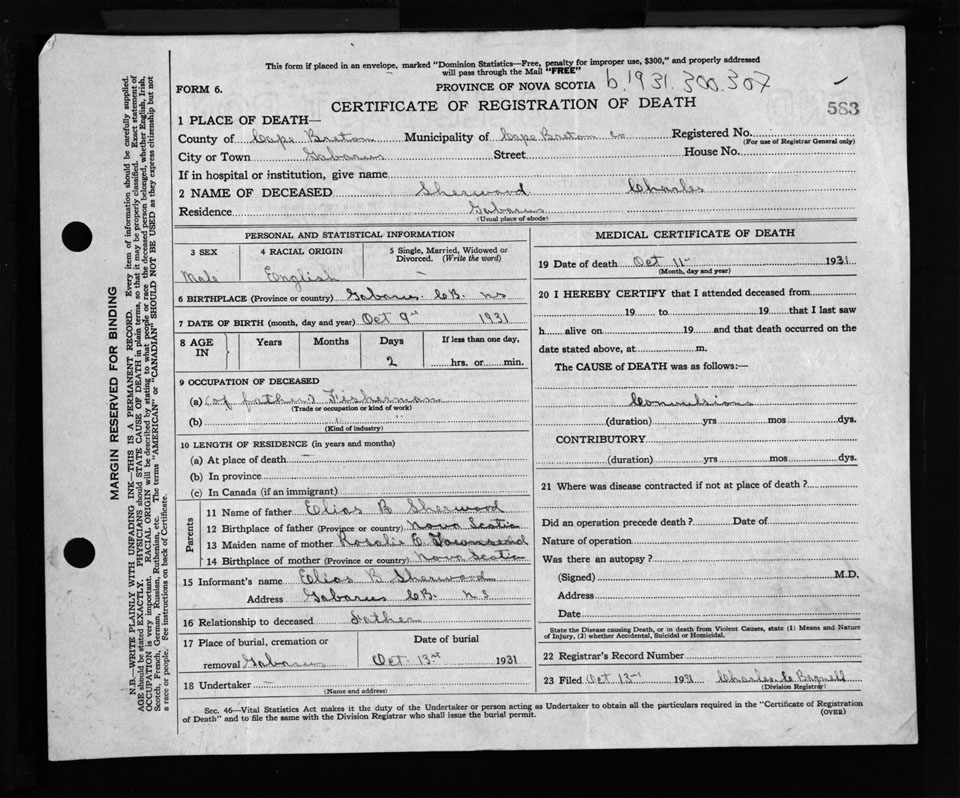 This form if placed in an envelope, marked "Dominion Statistics—Free, penalty for improper use, $300," and properly addressed
will pass through the Mail "FREE"
FORM 6.
PROVINCE OF NOVA SCOTIA b.1931.300.307
CERTIFICATE OF REGISTRATION OF DEATH
583
1 PLACE OF DEATH—
County of Cape Breton Municipality of Cape Breton Co Registered No.
(For use of Registrar General only)
City or Town Gabarus Street House No.
If in hospital or institution, give name
2 NAME OF DECEASED Sherwood Charles
Residence Gabarus
(Usual place of abode)
PERSONAL AND STATISTICAL INFORMATION
3 SEX 4 RACIAL ORIGIN 5 Single, Married, Widowed or Divorced. (Write the word)
Male English —
6 BIRTHPLACE (Province or country) Gabarus. C.B. NS
7 DATE OF BIRTH (month, day and year) Oct 9 1931
8 AGE IN Years Months Days If less than one day,
2 hrs. or min.
9 OCCUPATION OF DECEASED
(a) (of father) Fisherman
(Trade or occupation or kind of work)
(b)
(Kind of industry)
10 LENGTH OF RESIDENCE (in years and months)
(a) At place of death —
(b) In province
(c) In Canada (if an immigrant)
Parents
11 Name of father Elias B Sherwood
12 Birthplace of father (Province or country) Nova Scotia
13 Maiden name of mother Rosalie E. Townsend
14 Birthplace of mother (Province or country) Nova Scotia
15 Informant's name Elias B Sherwood
Address Gabarus C.B. N.S
16 Relationship to deceased Father
17 Place of burial, cremation or Date of burial
removal Gabarus Oct. 13 1931
18 Undertaker —
(Name and address)
MEDICAL CERTIFICATE OF DEATH
19 Date of death Oct 11 1931
(Month, day and year)
20 I HEREBY CERTIFY that I attended deceased from
19 to 19 that I last saw
h alive on 19 and that death occurred on the
date stated above, at m.
The CAUSE of DEATH was as follows:—
Convulsions
(duration) yrs mos dys.
CONTRIBUTORY
(duration) yrs mos dys.
21 Where was disease contracted if not at place of death ?
Did an operation precede death ? Date of
Nature of operation
Was there an autopsy ?
(Signed) M.D.
Address
Date
State the Disease causing Death, or in death from Violent Causes, state (1) Means and Nature
of Injury, (2) whether Accidental, Suicidal or Homicidal.
22 Registrar's Record Number
23 Filed Oct 13 1931 Charles C. Bagnell
(Division Registrar)
Sec. 46—Vital Statistics Act makes it the duty of the Undertaker or person acting as Undertaker to obtain all the particulars required in the "Certificate of Registration
of Death" and to file the same with the Division Registrar who shall issue the burial permit.
(OVER)
MARGIN RESERVED FOR BINDING
N.B.—WRITE PLAINLY WITH UNFADING INK—THIS IS A PERMANENT RECORD. Every item of information should be carefully supplied.
AGE should be stated EXACTLY. PHYSICIANS should STATE CAUSE OF DEATH in plain terms, so that it may be properly classified. Exact statement of
OCCUPATION is very important. RACIAL ORIGIN will be described by stating to what people or race the deceased person belonged, whether English, Irish,
Scotch, French, German, Russian, Ruthenian, etc. The terms "AMERICAN" or "CANADIAN" SHOULD NOT BE USED as they express citizenship but not
a race or people. See instructions on back of Certificate.